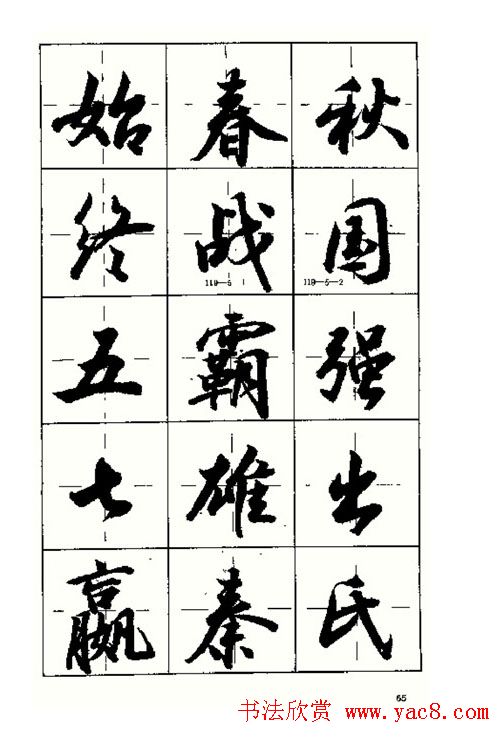 始春秋
终战国
119—5 119—5—2
五霸强
七雄出
嬴秦氏
65
书法欣赏 www.yac8.com